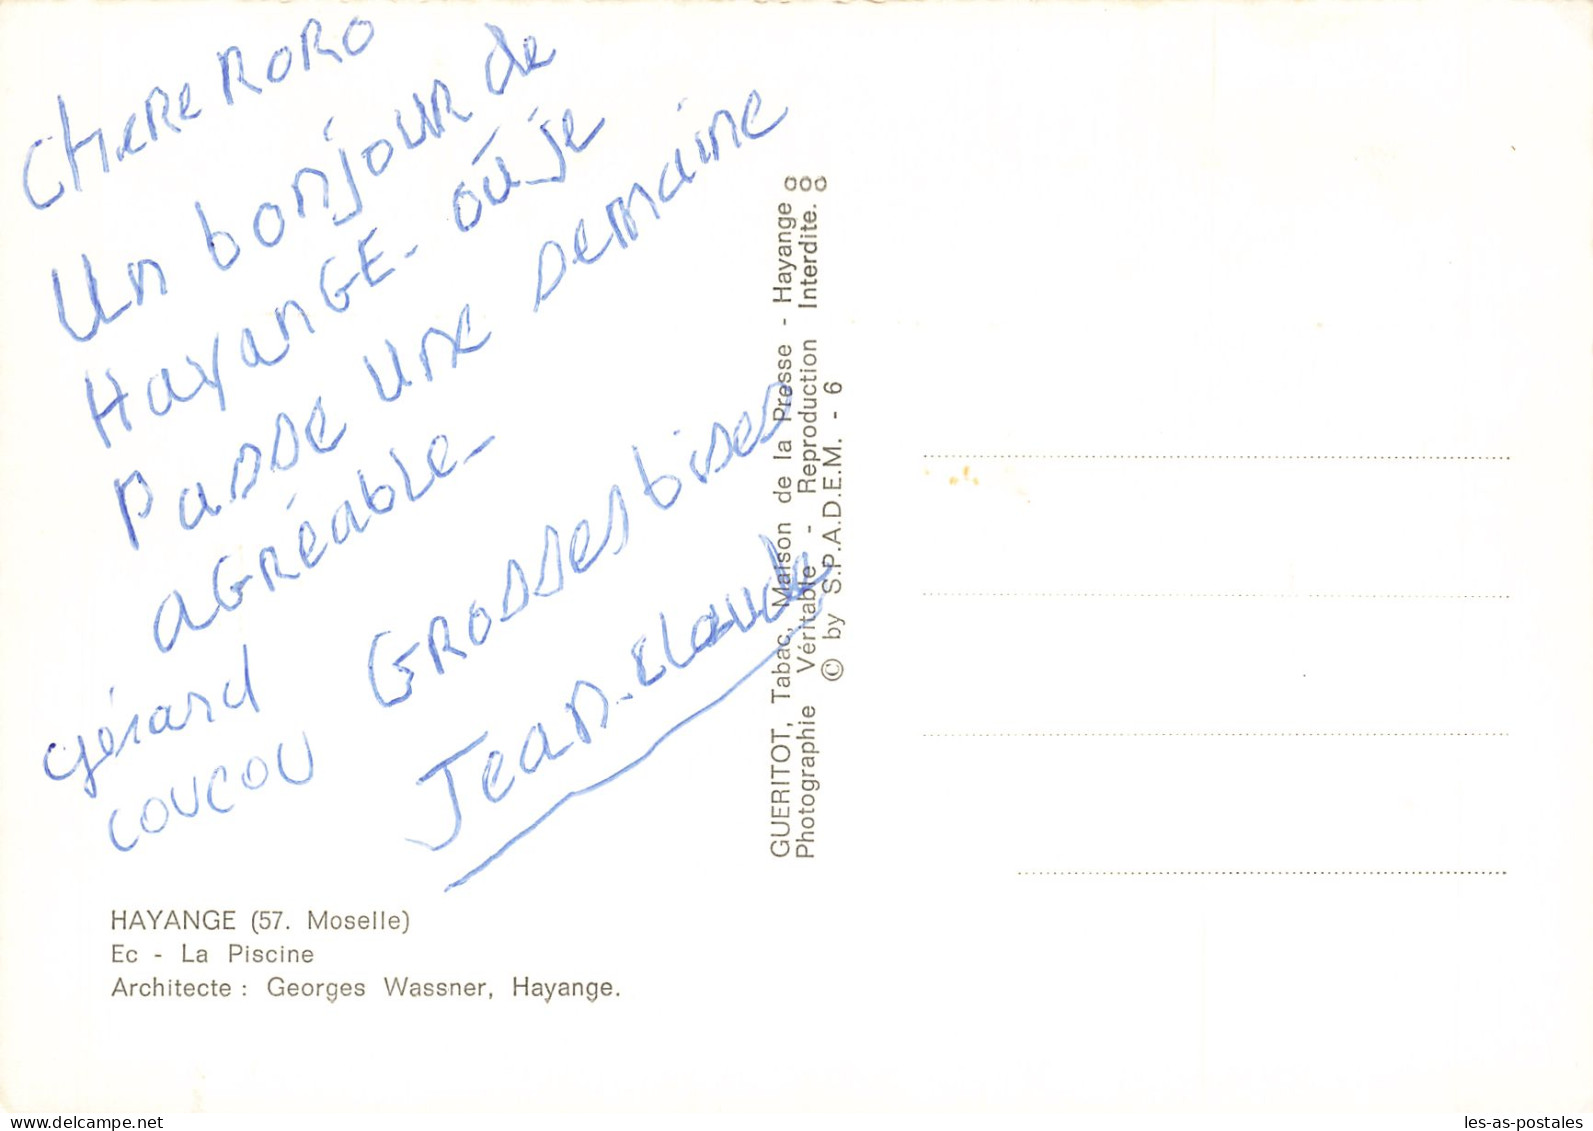 Chere RORO
Un bonjour de
HayanGE - où je
passe une semaine
aGRéable -
GROSSES bises
Jean-claude
Gérard
coucou
HAYANGE (57. Moselle)
Ec - La Piscine
Architecte : Georges Wassner, Hayange.
GUERITOT, Tabac, Maison de la Presse - Hayange
Photographie Véritable - Reproduction Interdite.
© by S.P.A.D.E.M. - 6
les-as-postales